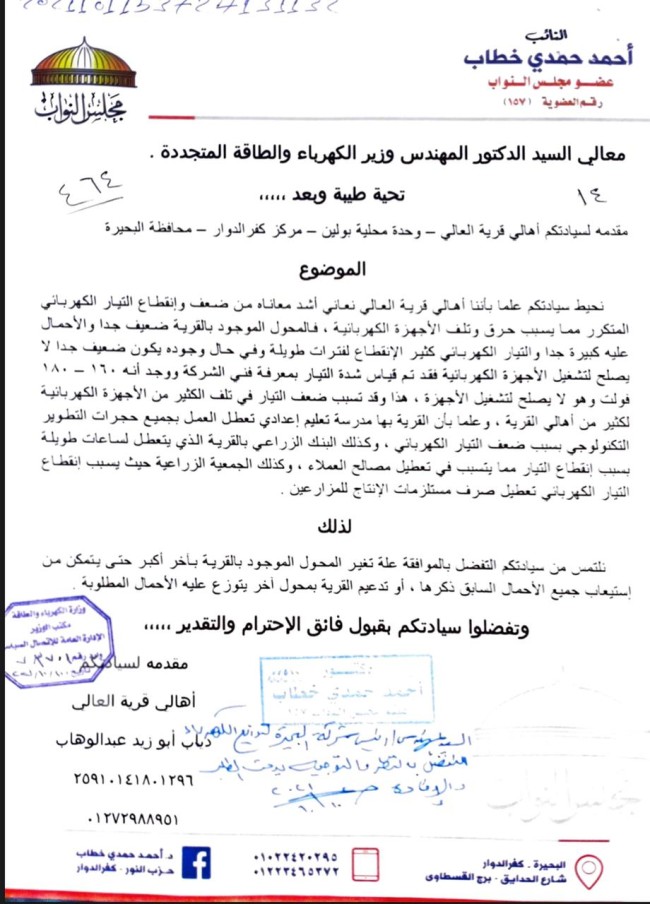 النائب
أحمد حمدي خطاب
عضو مجلس النواب
رقم العضوية (١٥٧)
مجلس النواب
معالي السيد الدكتور المهندس وزير الكهرباء والطاقة المتجددة .
١٤
تحية طيبة وبعد ،،،،،
٤٦٤
مقدمه لسيادتكم أهالي قرية العالي – وحدة محلية بولين – مركز كفرالدوار – محافظة البحيرة
الموضوع
نحيط سيادتكم علما بأننا أهالي قرية العالي نعاني أشد معاناه من ضعف وإنقطاع التيار الكهربائي
المتكرر مما يسبب حرق وتلف الأجهزة الكهربائية ، فالمحول الموجود بالقرية ضعيف جدا والأحمال
عليه كبيرة جدا والتيار الكهربائي كثير الإنقطاع لفترات طويلة وفي حال وجوده يكون ضعيف جدا لا
يصلح لتشغيل الأجهزة الكهربائية فقد تم قياس شدة التيار بمعرفة فني الشركة ووجد أنه ١٦٠ – ١٨٠
فولت وهو لا يصلح لتشغيل الأجهزة ، هذا وقد تسبب ضعف التيار في تلف الكثير من الأجهزة الكهربائية
لكثير من أهالي القرية ، وعلما بأن القرية بها مدرسة تعليم إعدادي تعطل العمل بجميع حجرات التطوير
التكنولوجي بسبب ضعف التيار الكهربائي ، وكذلك البنك الزراعي بالقرية الذي يتعطل لساعات طويلة
بسبب إنقطاع التيار مما يتسبب في تعطيل مصالح العملاء ، وكذلك الجمعية الزراعية حيث يسبب إنقطاع
التيار الكهربائي تعطيل صرف مستلزمات الإنتاج للمزارعين .
لذلك
نلتمس من سيادتكم التفضل بالموافقة علة تغير المحول الموجود بالقرية بأخر أكبر حتى يتمكن من
إستيعاب جميع الأحمال السابق ذكرها ، أو تدعيم القرية بمحول آخر يتوزع عليه الأحمال المطلوبة .
وتفضلوا سيادتكم بقبول فائق الإحترام والتقدير ،،،،،
وزارة الكهرباء والطاقة
مكتب الوزير
الإدارة العامة للاتصال السياسي
مقدمه لسيادتكم
أهالي قرية العالي
دياب أبو زيد عبدالوهاب
٢٥٩١٠١٤١٨٠١٢٩٦
٠١٢٧٢٩٨٨٩٥١
دكتور
أحمد حمدي خطاب
السيد المهندس / رئيس شركة البحيرة لتوزيع الكهرباء
للتفضل بالنظر والتوجيه
والإفادة
٢٠٢١
مجلس النواب
البحيرة . كفرالدوار
شارع الحدايق - برج القسطاوى
٠١٠٢٢٤٢٠٢٩٥
٠١٢٢٣٤٦٥٣٧٢
د.أحمد حمدي خطاب
حزب النور - كفرالدوار